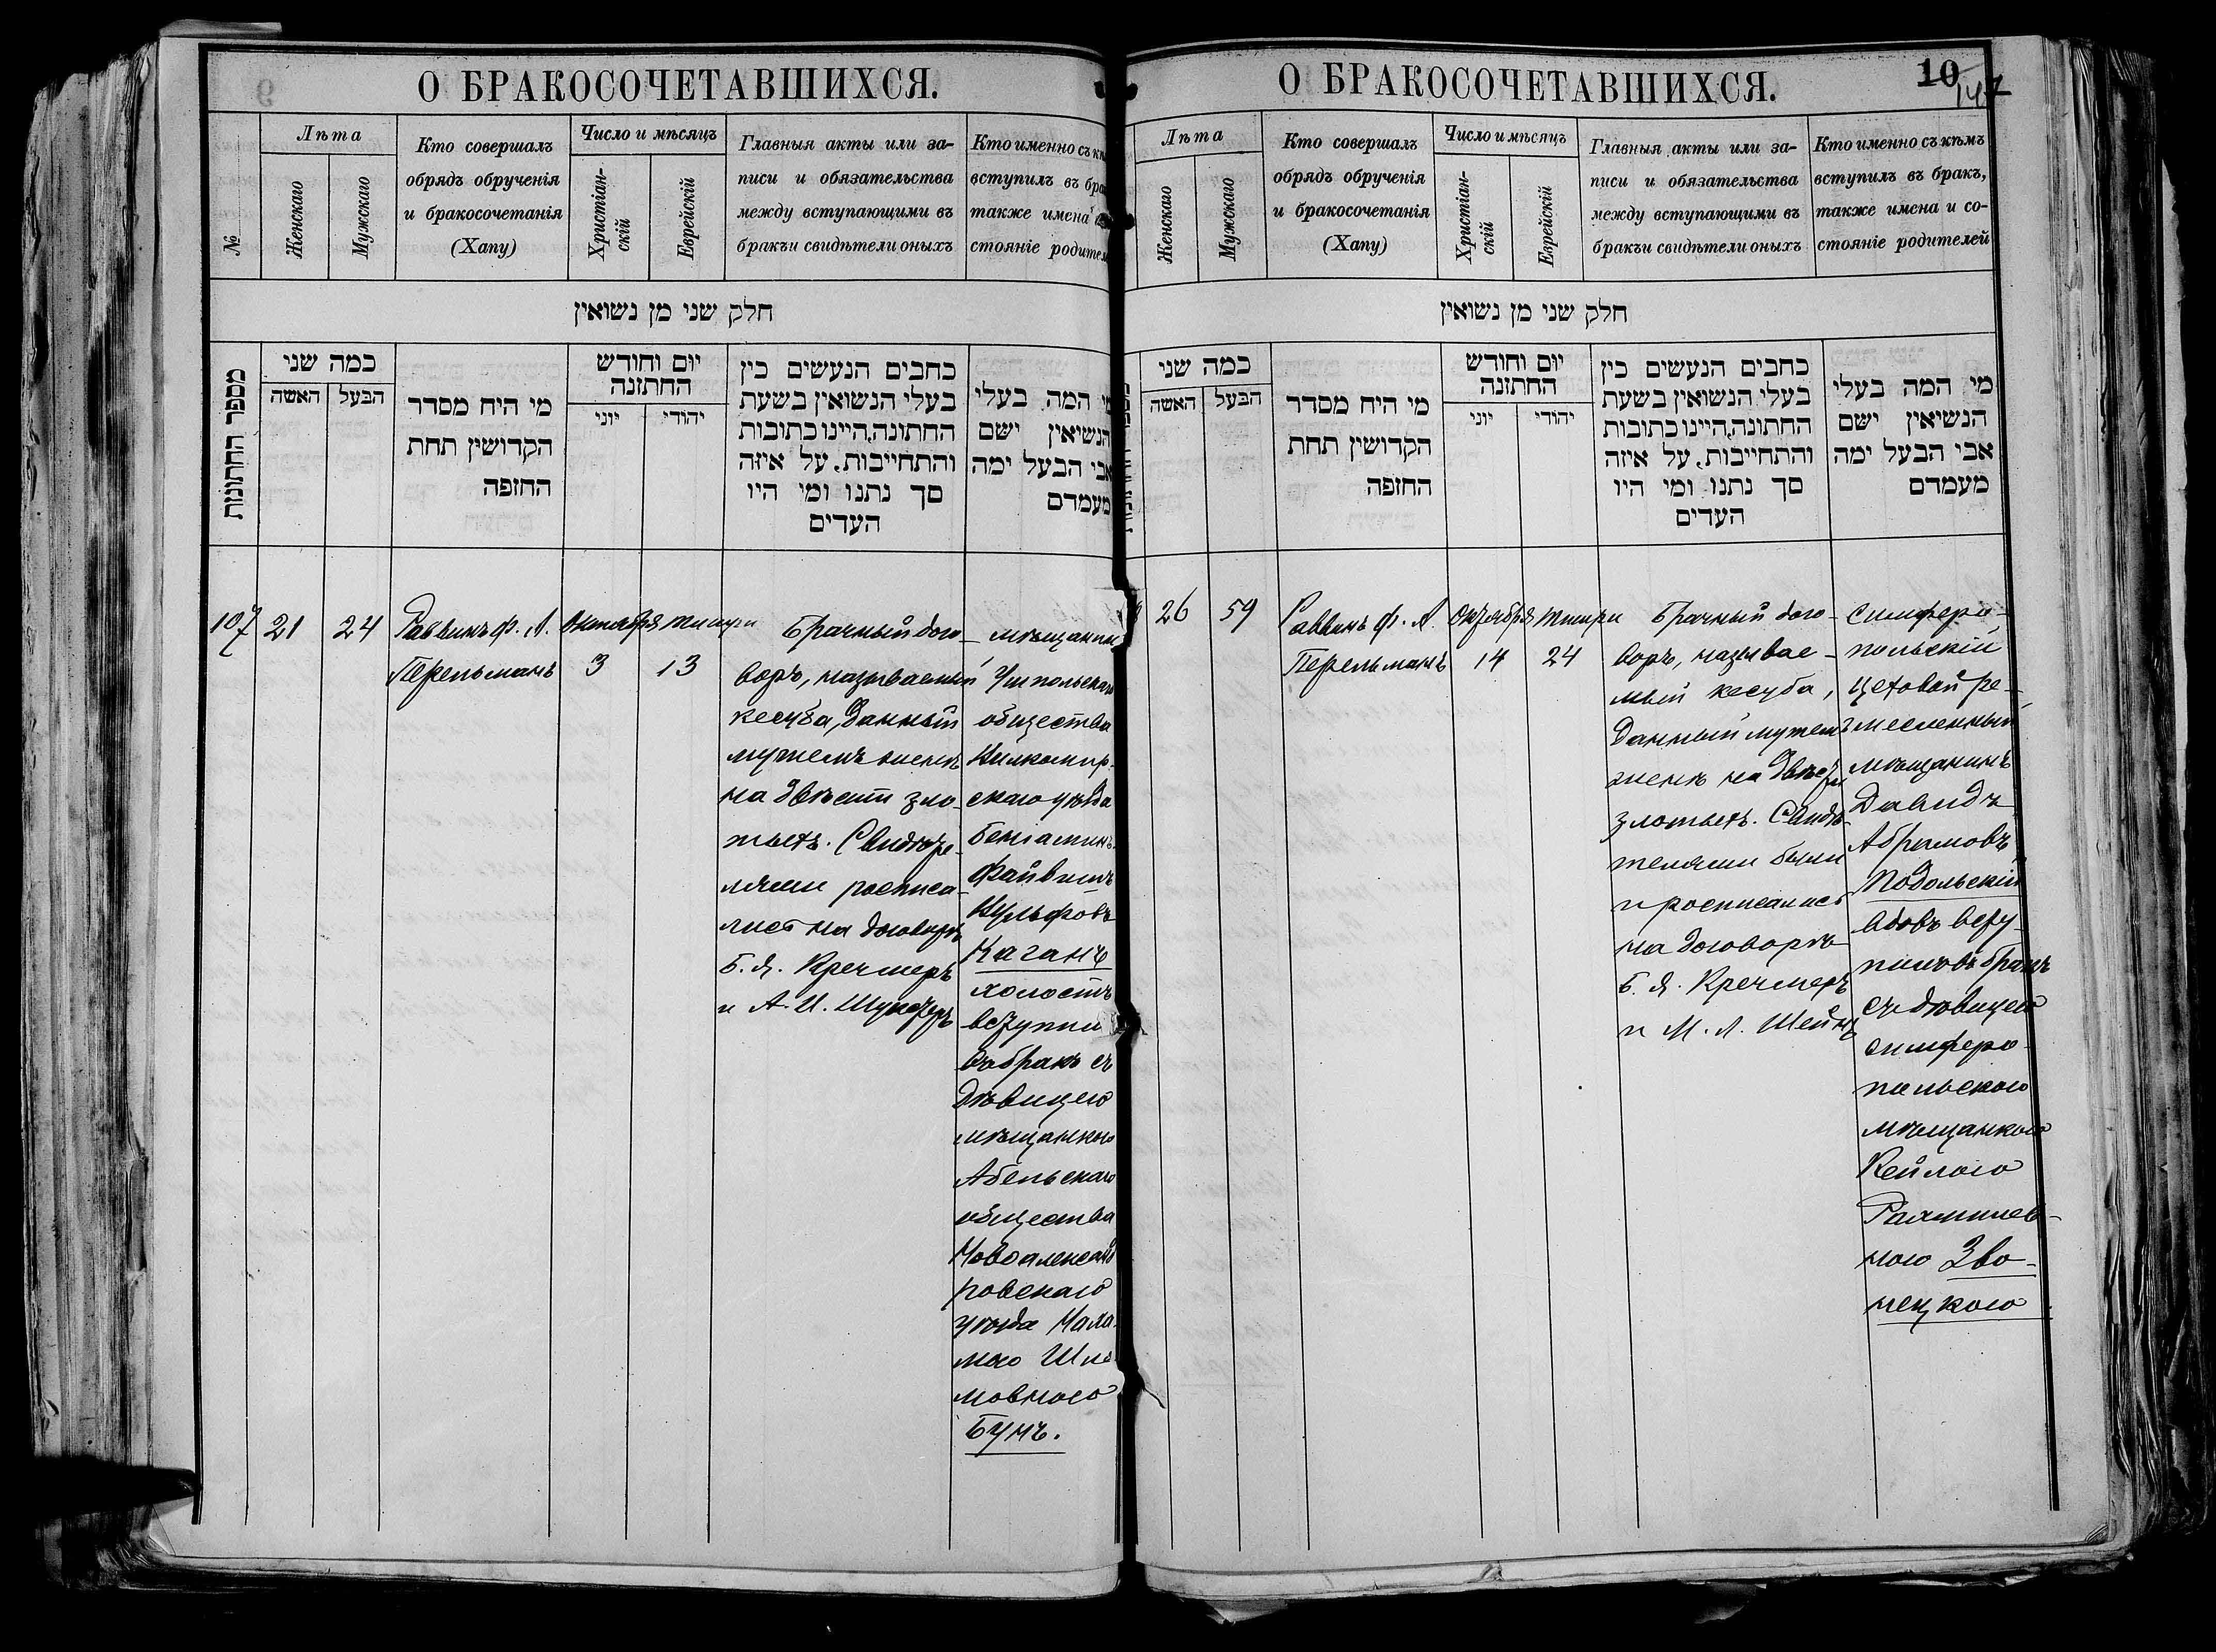 О БРАКОСОЧЕТАВШИХСЯ.
№
Лѣта
Женскаго
Мужскаго
Кто совершалъ
обрядъ обрученія
и бракосочетанія
(Хапу)
Число и мѣсяцъ
Христіан-
скій
Еврейскій
Главныя акты или за-
писи и обязательства
между вступающими въ
бракъи свидѣтели оныхъ
Кто именно съ
вступилъ въ
также имена
стояніе
חלק שני מן נשואין
מספר החתונות
כמה שני
האשה
הבעל
מי היח מסדר
הקדושין תחת
החזפה
יום וחודש
החתזנה
יוני
יהודי
כחבים הנעשים כין
בעלי הנשואין בשעת
החתונה,היינו כתובות
והתחייבות, על איזה
סך נתנו ומי היו
העדים
מי המה בעלי
הנשיאין ישם
אבי הבעל ימה
מעמדם
107
21
24
Раввинъ Ф. Л.
Перельманъ
Октября
3
Тишри
13
Брачный дого-
воръ, называемый
кесуба, данный
мужемъ женѣ
на двѣсти зло-
тыхъ. Свидѣте-
лями росписа-
лись на договорѣ
Б. Я. Кречмеръ
и А. И.
мѣщанинъ
общества
Вилкомир-
скаго уѣзда
Беніаминъ
Файвишъ
Вульфовъ
Каганъ
холостъ
вступилъ
въ бракъ съ
дѣвицею
мѣщанкою
Абельскаго
общества
Новоалександ
ровскаго
уѣзда Меха-
мою Шло-
мовною
Бунъ.
О БРАКОСОЧЕТАВШИХСЯ.
10
147
Лѣта
Женскаго
Мужскаго
Кто совершалъ
обрядъ обрученія
и бракосочетанія
(Хапу)
Число и мѣсяцъ
Христіан-
скій
Еврейскій
Главныя акты или за-
писи и обязательства
между вступающими въ
бракъи свидѣтели оныхъ
Кто именно съ кѣмъ
вступилъ въ бракъ,
также имена и со-
стояніе родителей
חלק שני מן נשואין
כמה שני
האשה
הבעל
מי היח מסדר
הקדושין תחת
החזפה
יום וחודש
החתזנה
יוני
יהודי
כחבים הנעשים כין
בעלי הנשואין בשעת
החתונה,היינו כתובות
והתחייבות, על איזה
סך נתנו ומי היו
העדים
מי המה בעלי
הנשיאין ישם
אבי הבעל ימה
מעמדם
26
59
Раввинъ Ф. Л.
Перельманъ
Октября
14
Тишри
24
Брачный дого-
воръ, называе-
мый кесуба,
данный мужемъ
женѣ на двѣсти
злотыхъ. Свидѣ-
телями были
и росписались
на договорѣ
Б. Я. Кречмеръ
и М. Л. Шейнъ
Симферо-
польскій
цеховой ре-
месленный
мѣщанинъ
Давидъ
Абрамовъ
Подольскій
вдовъ всту-
пилъ въ бракъ
съ дѣвицею
симферо-
польскою
мѣщанкою
Кейлою
Рахмилев-
ною Зво-
нецкою